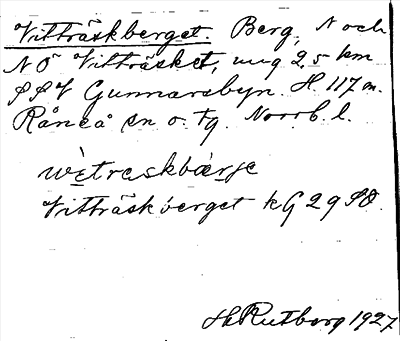 Vitträskberget. Berg, N och
NÖ Vitträsket, ung 2,5 km
SSV Gunnarsbyn. H. 117 m.
Råneå sn o. tg. Norrb. l.
wètraskbærje
Vitträskberget kG 29 SO.
H Rutberg 1927